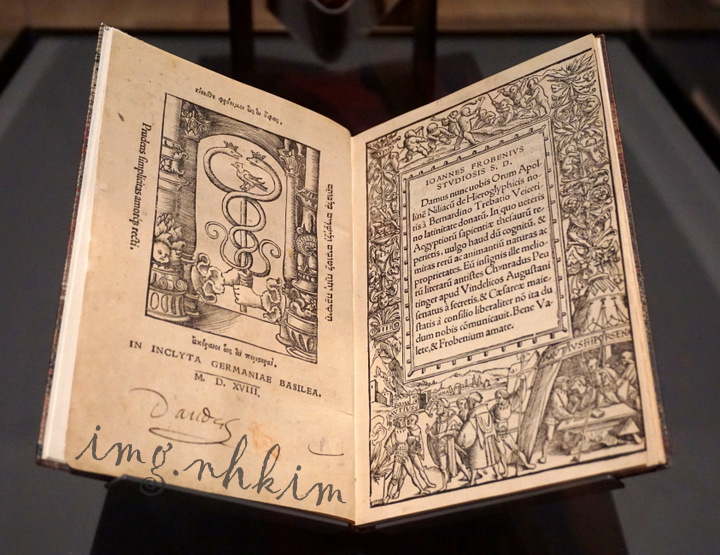 γίνεσθε φρόνιμοι ὡς οἱ ὄφεις,
Prudens simplicitas amorq; recti.
היטיבה יהוה לטובים ולישרים בלבותם
ἀκέραιοι ὡς αἱ περιστεραί.
IN INCLYTA GERMANIAE BASILEA.
M. D. XVIII.
IOANNES FROBENIVS
STVDIOSIS S. D.
Damus nunc uobis Orum Apol
linē Niliacū de Hieroglyphicis no
tis à Bernardino Trebatio Veieti-
no latinitate donatū. In quo ueteris
Aegyptiorū sapientiæ thesaurū re
perietis, uulgo haud dū cognitū, &
miras rerū ac animantiū naturas ac
proprietates. Eū insignis ille melio-
rū literarū antistes Chunradus Peu
tinger apud Vindelicos Augustani
senatus à secretis, & Cæsareæ maie-
statis à consilio liberaliter nō ita du
dum nobis cōmunicauit. Bene Va-
lete, & Frobenium amate.
PORSENA
© img.nhkim